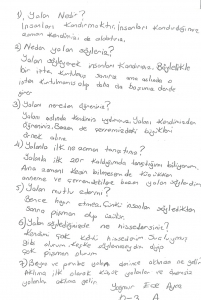 1) Yalan Nedir?
İnsanları kandırmaktır. İnsanları kandırdığımız
zaman kendimizi de aldatırız.
2) Neden yalan söyleriz?
Yalan söyleyerek insanları kandırırız. Böylelikle
bir işten kurtulma ama aslında o
işten kurtulmamış olup daha da başımıza derde
girer.
3) Yalan nereden öğreniriz?
Yalanı aslında kendimiz uydururuz. Yalanı kendimizden
öğreniriz. Bazen de çevremizdeki kişileri
örnek alırız
4) Yalanla ilk ne zaman tanıştın?
Yalanla ilk sefer kaldığımda tanıştığımı biliyorum.
Ama zamanı kesin bilmesem de küçükken
anneme ve çevremdekilere bazen yalan söylerdim
5) Yalan mutlu edermi?
Bence hayır etmez. Çünkü insanlar söyledikten
Sonra pişman olup üzülür.
6) Yalan söylediğinizde ne hissedersiniz?
Kendimi çok kötü hissederim. Suçluymuş
gibi olurum. Keşke söylemeseydim diye
çok pişman olurum.
7) Beyaz ve pembe yalan denince aklınıza ne gelir
Aklıma ilk olarak küçük yalanlar ve önemsiz
yalanlar aklıma gelir.
Yağmur Ece Ayna
A